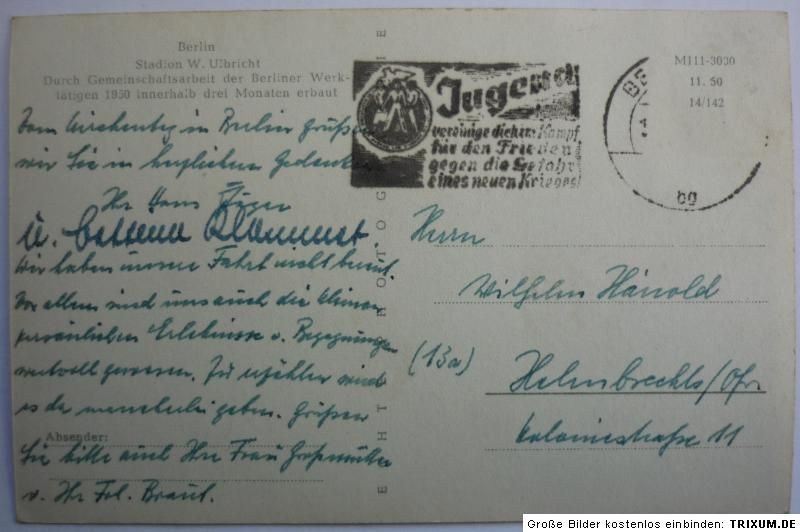 Berlin
Stadion W. Ulbricht
Durch Gemeinschaftsarbeit der Berliner Werk-
tätigen 1950 innerhalb drei Monaten erbaut
Vom Kirchentag in Berlin grüßen
wir Sie in herzlichen Gedenken
Ihr Hans
u.
Wir haben unsere Fahrt nicht bereut.
Vor allem sind uns auch die kleinen
persönlichen Erlebnisse u. Begegnungen
wertvoll gewesen. Zu erzählen wird
es da mancherlei geben. Grüßen
Absender:
Sie bitte auch Ihre Frau Großmutter
u. Ihr Frl. Braut.
ECHT PHOTOGRAPHIE
Jugend
vereinige dich im Kampf
für den Frieden
gegen die Gefahr
eines neuen Krieges!
BE
bg
M111-3000
11. 50
14/142
Herrn
Wilhelm Hänold
(13a) Helmbrechts/Ofr.
Koloniestraße 11
Große Bilder kostenlos einbinden: TRIXUM.DE